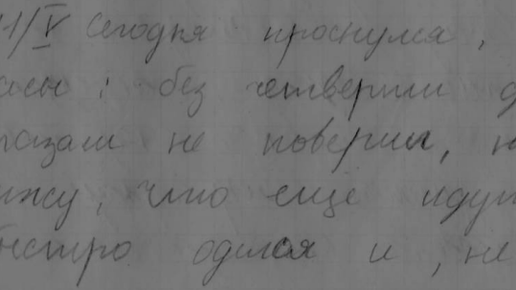 1/V Сегодня проснулся,
асы: без четверти д
лазам не поверил, н
ижу, что ещё идут
быстро оделся и, не